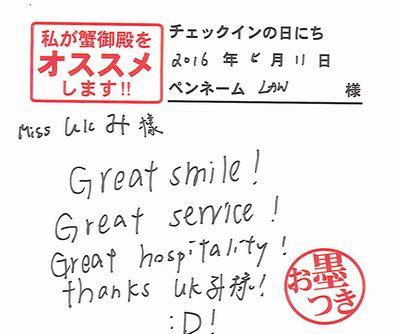 私が蟹御殿を
オススメ
します!!
チェックインの日にち
2016 年 5 月 11 日
ペンネーム LAW 様
Miss ukみ様
Great smile!
Great service!
Great hospitality!
thanks ukみ様!
:D!
お墨
つき